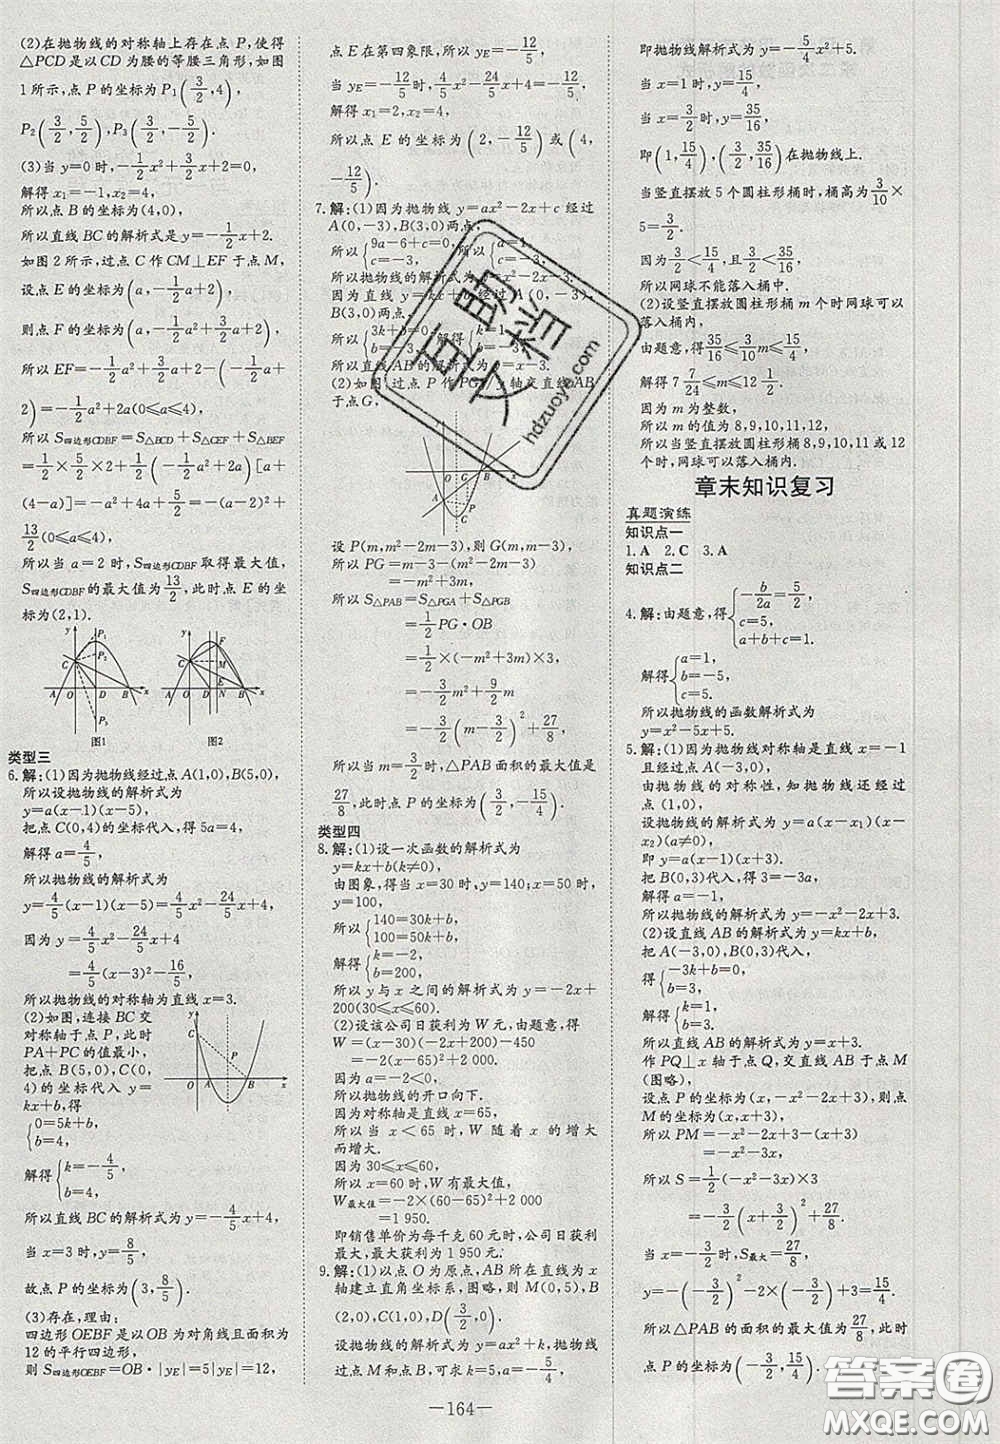 (2)在抛物线的对称轴上存在点 P,使得
△PCD是以CD为腰的等腰三角形,如图
1所示,点 P 的坐标为 P₁(3/2,4),
P₂(3/2,5/2),P₃(3/2,-5/2).
(3)当 y=0时,-1/2x²+3/2x+2=0
解得 x₁=-1,x₂=4,
所以点 B 的坐标为(4,0),
所以直线 BC 的解析式是 y=-1/2x+2.
如图 2 所示,过点 C 作 CM⊥EF 于点 M,
设点 E 的坐标为(a,-1/2a+2),
则点 F 的坐标为(a,-1/2a²+3/2a+2),
所以 EF=-1/2a²+3/2a+2-(-1/2a+
2)=-1/2a²+2a(0≤a≤4),
所以 S四边形CDBF=S△BCD+S△CEF+S△BEF
=1/2×5/2×2+1/2(-1/2a²+2a)[a+
(4-a)]=-a²+4a+5/2=-(a-2)²+
13/2(0≤a≤4).
所以当 a=2 时,S四边形CDBF取得最大值,
S四边形CDBF的最大值为13/2,此时点 E 的坐
标为(2,1).
图1 图2
类型三
6.解:(1)因为抛物线经过点A(1,0),B(5,0),
所以设抛物线的解析式为
y=a(x-1)(x-5).
把点 C(0,4)的坐标代入,得5a=4,
解得 a=4/5,
所以抛物线的解析式为
y=4/5(x-1)(x-5)=4/5x²-24/5x+4,
因为 y=4/5x²-24/5x+4
=4/5(x-3)²-16/5,
所以抛物线的对称轴为直线 x=3.
(2)如图,连接 BC 交
对称轴于点 P,此时
PA+PC的值最小,
把点 B(5,0),C(0,
4)的坐标代入 y=
kx+b,得
{0=5k+b,
b=4,
解得{k=-4/5,
b=4,
所以直线 BC 的解析式为 y=-4/5x+4,
当 x=3 时,y=8/5,
故点 P 的坐标为(3,8/5).
(3)存在,理由:
四边形 OEBF 是以 OB 为对角线且面积为
12 的平行四边形,
则 S四边形OEBF=OB·|yE|=5|yE|=12,
点 E 在第四象限,所以 yE=-12/5,
当 yE=-12/5时,-12/5=4/5x²-24/5x+4=-12/5,
解得 x₁=2,x₂=4,
所以点 E 的坐标为(2,-12/5)或(4,
-12/5).
7.解:(1)因为抛物线 y=ax²-2x+c 经过
A(0,-3),B(3,0)两点,
所以{9a-6+c=0,
c=-3,
所以{a=1,
c=-3,
所以抛物线的解析式为 y=x²-2x-3.
因为直线 y=kx+b 经过 A(0,-3),
B(3,0)两点,
所以{3k+b=0,
b=-3,
解得{k=1,
b=-3,
所以直线 AB 的解析式为 y=x-3.
(2)如图,过点 P 作 PG∥y轴交直线AB
于点 G,
设 P(m,m²-2m-3),则 G(m,m-3),
所以 PG=m-3-(m²-2m-3)
=-m²+3m,
所以 S△PAB=S△PGA+S△PGB
=1/2PG·OB
=1/2×(-m²+3m)×3
=-3/2m²+9/2m
=-3/2(m-3/2)²+27/8,
所以当 m=3/2时,△PAB 面积的最大值是
27/8,此时点 P 的坐标为(3/2,-15/4).
类型四
8.解:(1)设一次函数的解析式为
y=kx+b(k≠0),
由图象,得当 x=30 时,y=140;x=50 时,
y=100,
所以{140=30k+b,
100=50k+b,
解得{k=-2,
b=200,
所以 y 与 x 之间的解析式为 y=-2x+
200(30≤x≤60).
(2)设该公司日获利为 W 元,由题意,得
W=(x-30)(-2x+200)-450
=-2(x-65)²+2 000,
因为 a=-2<0,
所以抛物线的开口向下.
因为对称轴是直线 x=65,
所以当 x<65 时,W 随着 x 的增大
而增大.
因为 30≤x≤60,
所以 x=60 时,W 有最大值,
W最大值=-2×(60-65)²+2 000
=1 950.
即销售单价为每千克 60 元时,公司日获利
最大,最大获利为 1 950 元.
9.解:(1)以点 O 为原点,AB 所在直线为 x
轴建立直角坐标系,图略,则 M(0,5),B
(2,0),C(1,0),D(3/2,0).
设抛物线的解析式为 y=ax²+k,抛物线
过点 M 和点 B,可求 k=5,a=-5/4,
即抛物线解析式为 y=-5/4x²+5.
当 x=1 时,y=15/4;
当 x=3/2时,y=35/16,
即(1,15/4),(3/2,35/16)在抛物线上.
当竖直摆放 5 个圆柱形桶时,桶高为3/10×
5=3/2,
因为3/2<15/4,且3/2<35/16,
所以网球不能落入桶中.
(2)设竖直摆放圆柱形桶 m 个时网球可以
落入桶内,
由题意,得35/16≤3/10m≤15/4,
解得 7 7/24≤m≤12 1/2.
因为 m 为整数,
所以 m 的值为 8,9,10,11,12,
所以当竖直摆放圆柱形桶 8,9,10,11 或 12
个时,网球可以落入桶内.
章末知识复习
真题演练
知识点一
1.A 2.C 3.A
知识点二
4.解:由题意,得{-b/2a=5/2,
c=5,
a+b+c=1,
解得{a=1,
b=-5,
c=5.
所以抛物线的函数解析式为
y=x²-5x+5.
5.解:(1)因为抛物线对称轴是直线 x=-1
且经过点 A(-3,0),
由抛物线的对称性,知抛物线还经过
点 (1,0),
设抛物线的解析式为 y=a(x-x₁)(x-
x₂)(a≠0),
即 y=a(x-1)(x+3).
把 B(0,3)代入,得 3=-3a,
解得 a=-1,
所以抛物线的解析式为 y=-x²-2x+3.
(2)设直线 AB 的解析式为 y=kx+b,
把 A(-3,0),B(0,3)代入,
得{-3k+b=0,
b=3,
解得{k=1,
b=3,
所以直线 AB 的解析式为 y=x+3.
作 PQ⊥x 轴于点 Q,交直线 AB 于点 M
(图略),
设点 P 的坐标为(x,-x²-2x+3),则点
M 的坐标为(x,x+3),
所以 PM=-x²-2x+3-(x+3)
=-x²-3x,
所以 S=1/2(-x²-3x)×3
=-3/2(x+3/2)²+27/8,
当 x=-3/2时,S最大=27/8,
y=-(-3/2)²-2×(-3/2)+3=15/4,
所以△PAB 的面积的最大值为27/8,此时
点 P 的坐标为(-3/2,15/4).
—164—
互助文档
hdzuoye.com
答案圈
MXQE.COM